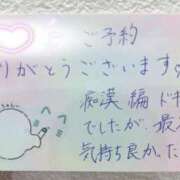 ご予約
りがとうございます
痴漢編 ドキ
でしたが、最
気持ち良かった